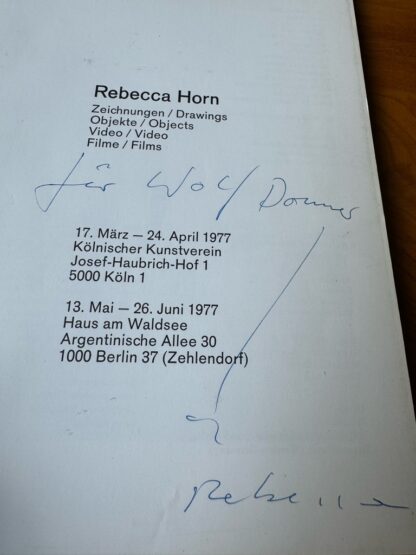 Rebecca Horn
Zeichnungen / Drawings
Objekte / Objects
Video / Video
Filme / Films
für Wolf Donner
17. März — 24. April 1977
Kölnischer Kunstverein
Josef-Haubrich-Hof 1
5000 Köln 1
13. Mai — 26. Juni 1977
Haus am Waldsee
Argentinische Allee 30
1000 Berlin 37 (Zehlendorf)
Rebecca